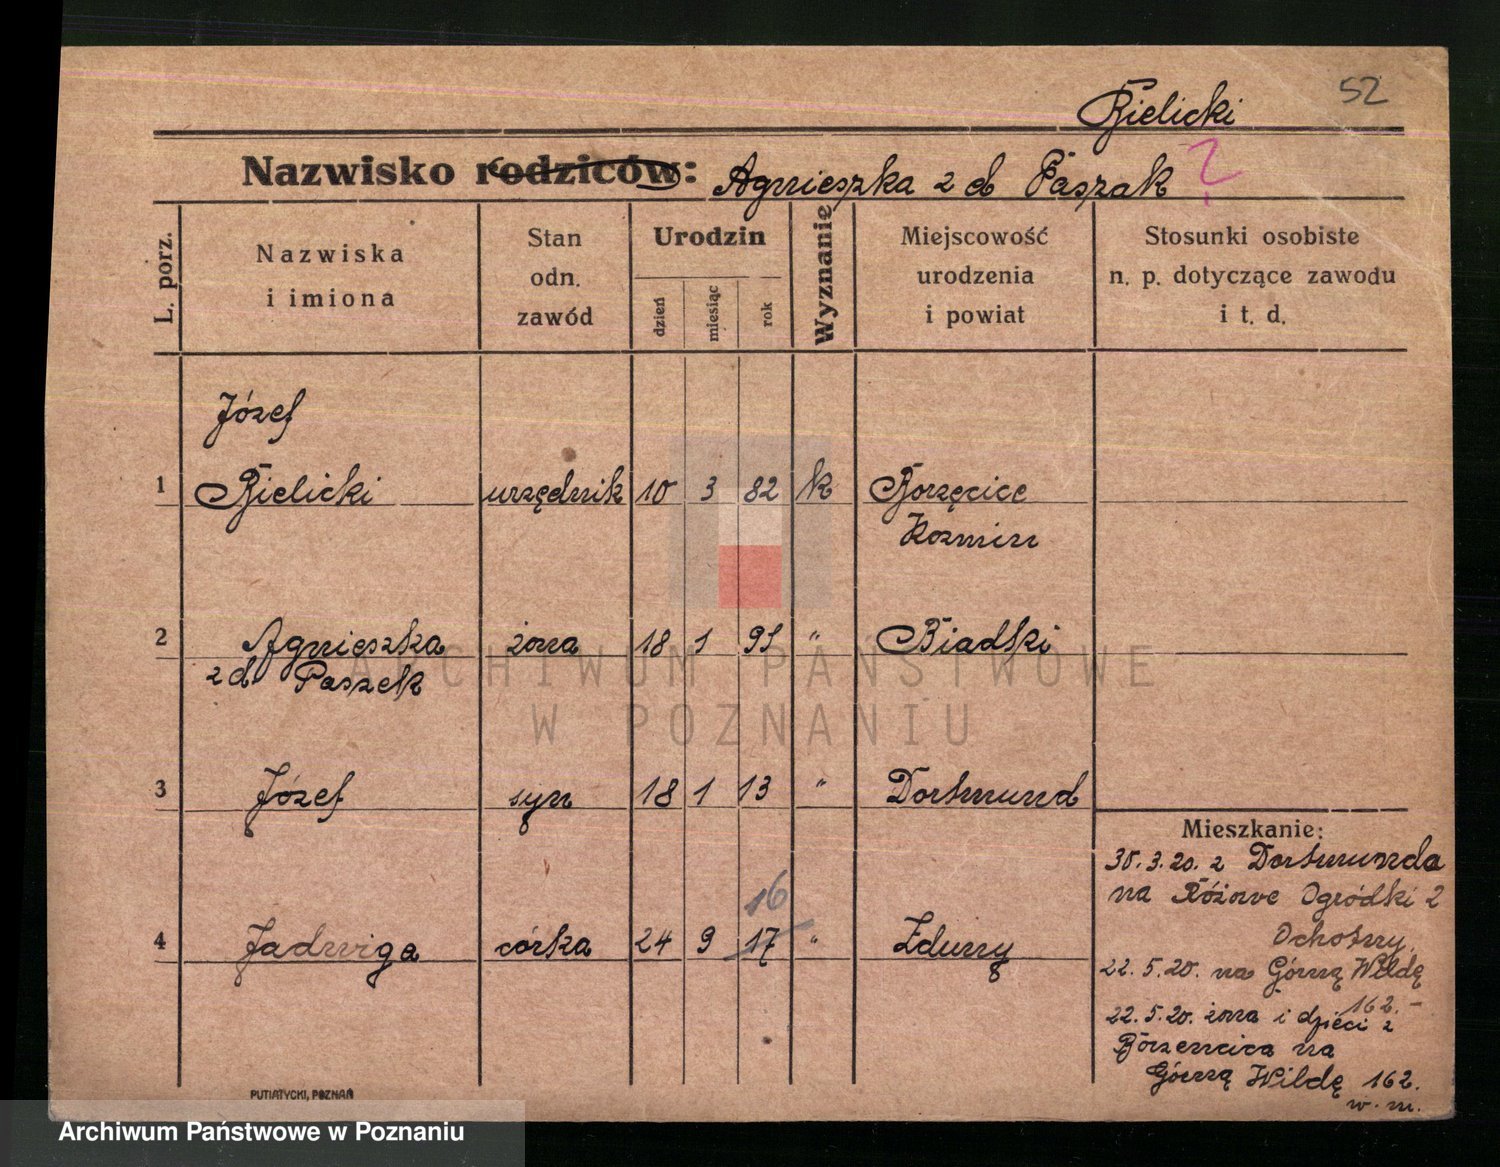 52
Bielicki
Nazwisko rodziców: Agnieszka z d Paszak ?
L. porz.
Nazwiska i imiona
Stan odn. zawód
Urodzin
dzień
miesiąc
rok
Wyznanie
Miejscowość urodzenia i powiat
Stosunki osobiste n. p. dotyczące zawodu i t. d.
Józef
1 Bielicki urzędnik 10 3 82 k Borzęcice
Kozmin
2 Agnieszka żona 18 1 91 " Biadki
z d. Paszek
3 Józef syn 18 1 13 " Dortmund
16
4 Jadwiga córka 24 9 17 " Zduny
Mieszkanie:
30.3.20. z Dortmunda
na Różowe Ogródki 2
Ochotny.
22.5.20. na Górną Wildę
162.-
22.5.20. żona i dzieci z
Borzencica na
Górną Wildę 162.
w. m.
PUTIATYCKI, POZNAŃ
ARCHIWUM PAŃSTWOWE
W POZNANIU
Archiwum Państwowe w Poznaniu